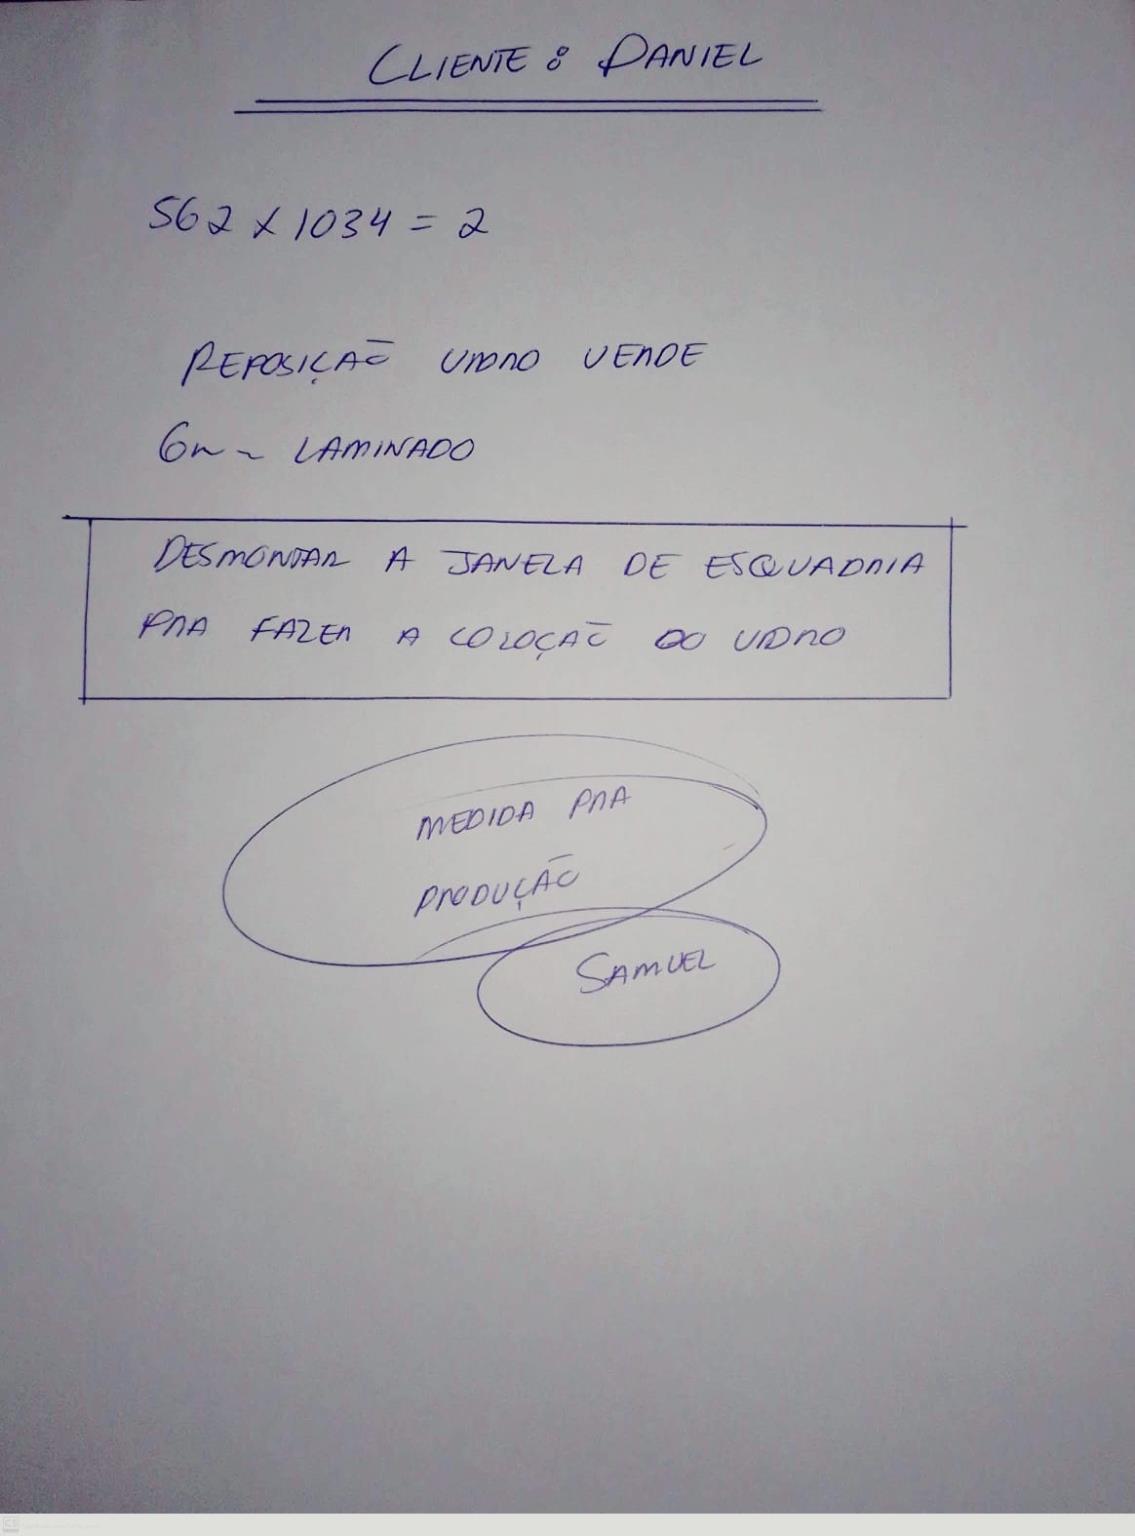 CLIENTE: DANIEL
562 x 1034 = 2
REPOSIÇÃO VIDRO VERDE
6mm LAMINADO
DESMONTAR A JANELA DE ESQUADRIA
PRA FAZER A COLOÇÃO DO VIDRO
MEDIDA PRA
PRODUÇÃO
SAMUEL
CS